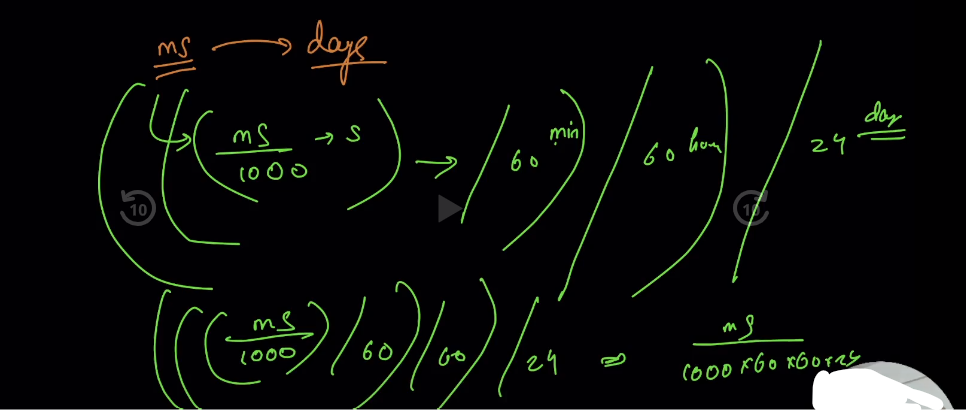 ms → days
(((ms/1000 → s) → /60 min) /60 hour) /24 day
10 10
(((ms/1000)/60)/60)/24 ⇒ ms/1000×60×60×24